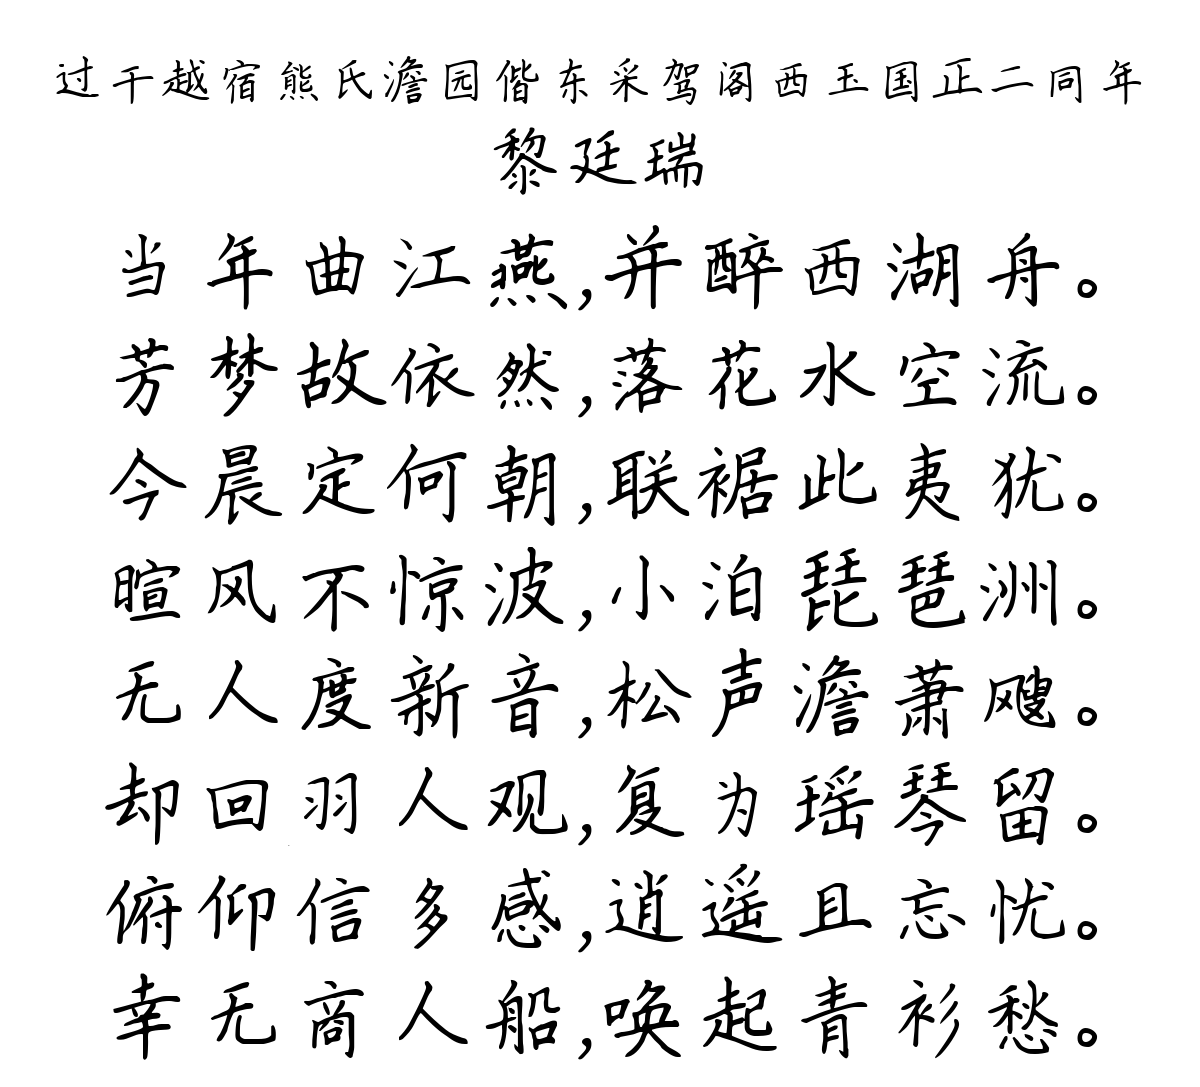 过干越宿熊氏澹园偕东采驾阁西玉国正二同年
黎廷瑞
当年曲江燕,并醉西湖舟。
芳梦故依然,落花水空流。
今晨定何朝,联裾此夷犹。
暄风不惊波,小泊琵琶洲。
无人度新音,松声澹萧飕。
却回羽人观,复为瑶琴留。
俯仰信多感,逍遥且忘忧。
幸无商人船,唤起青衫愁。